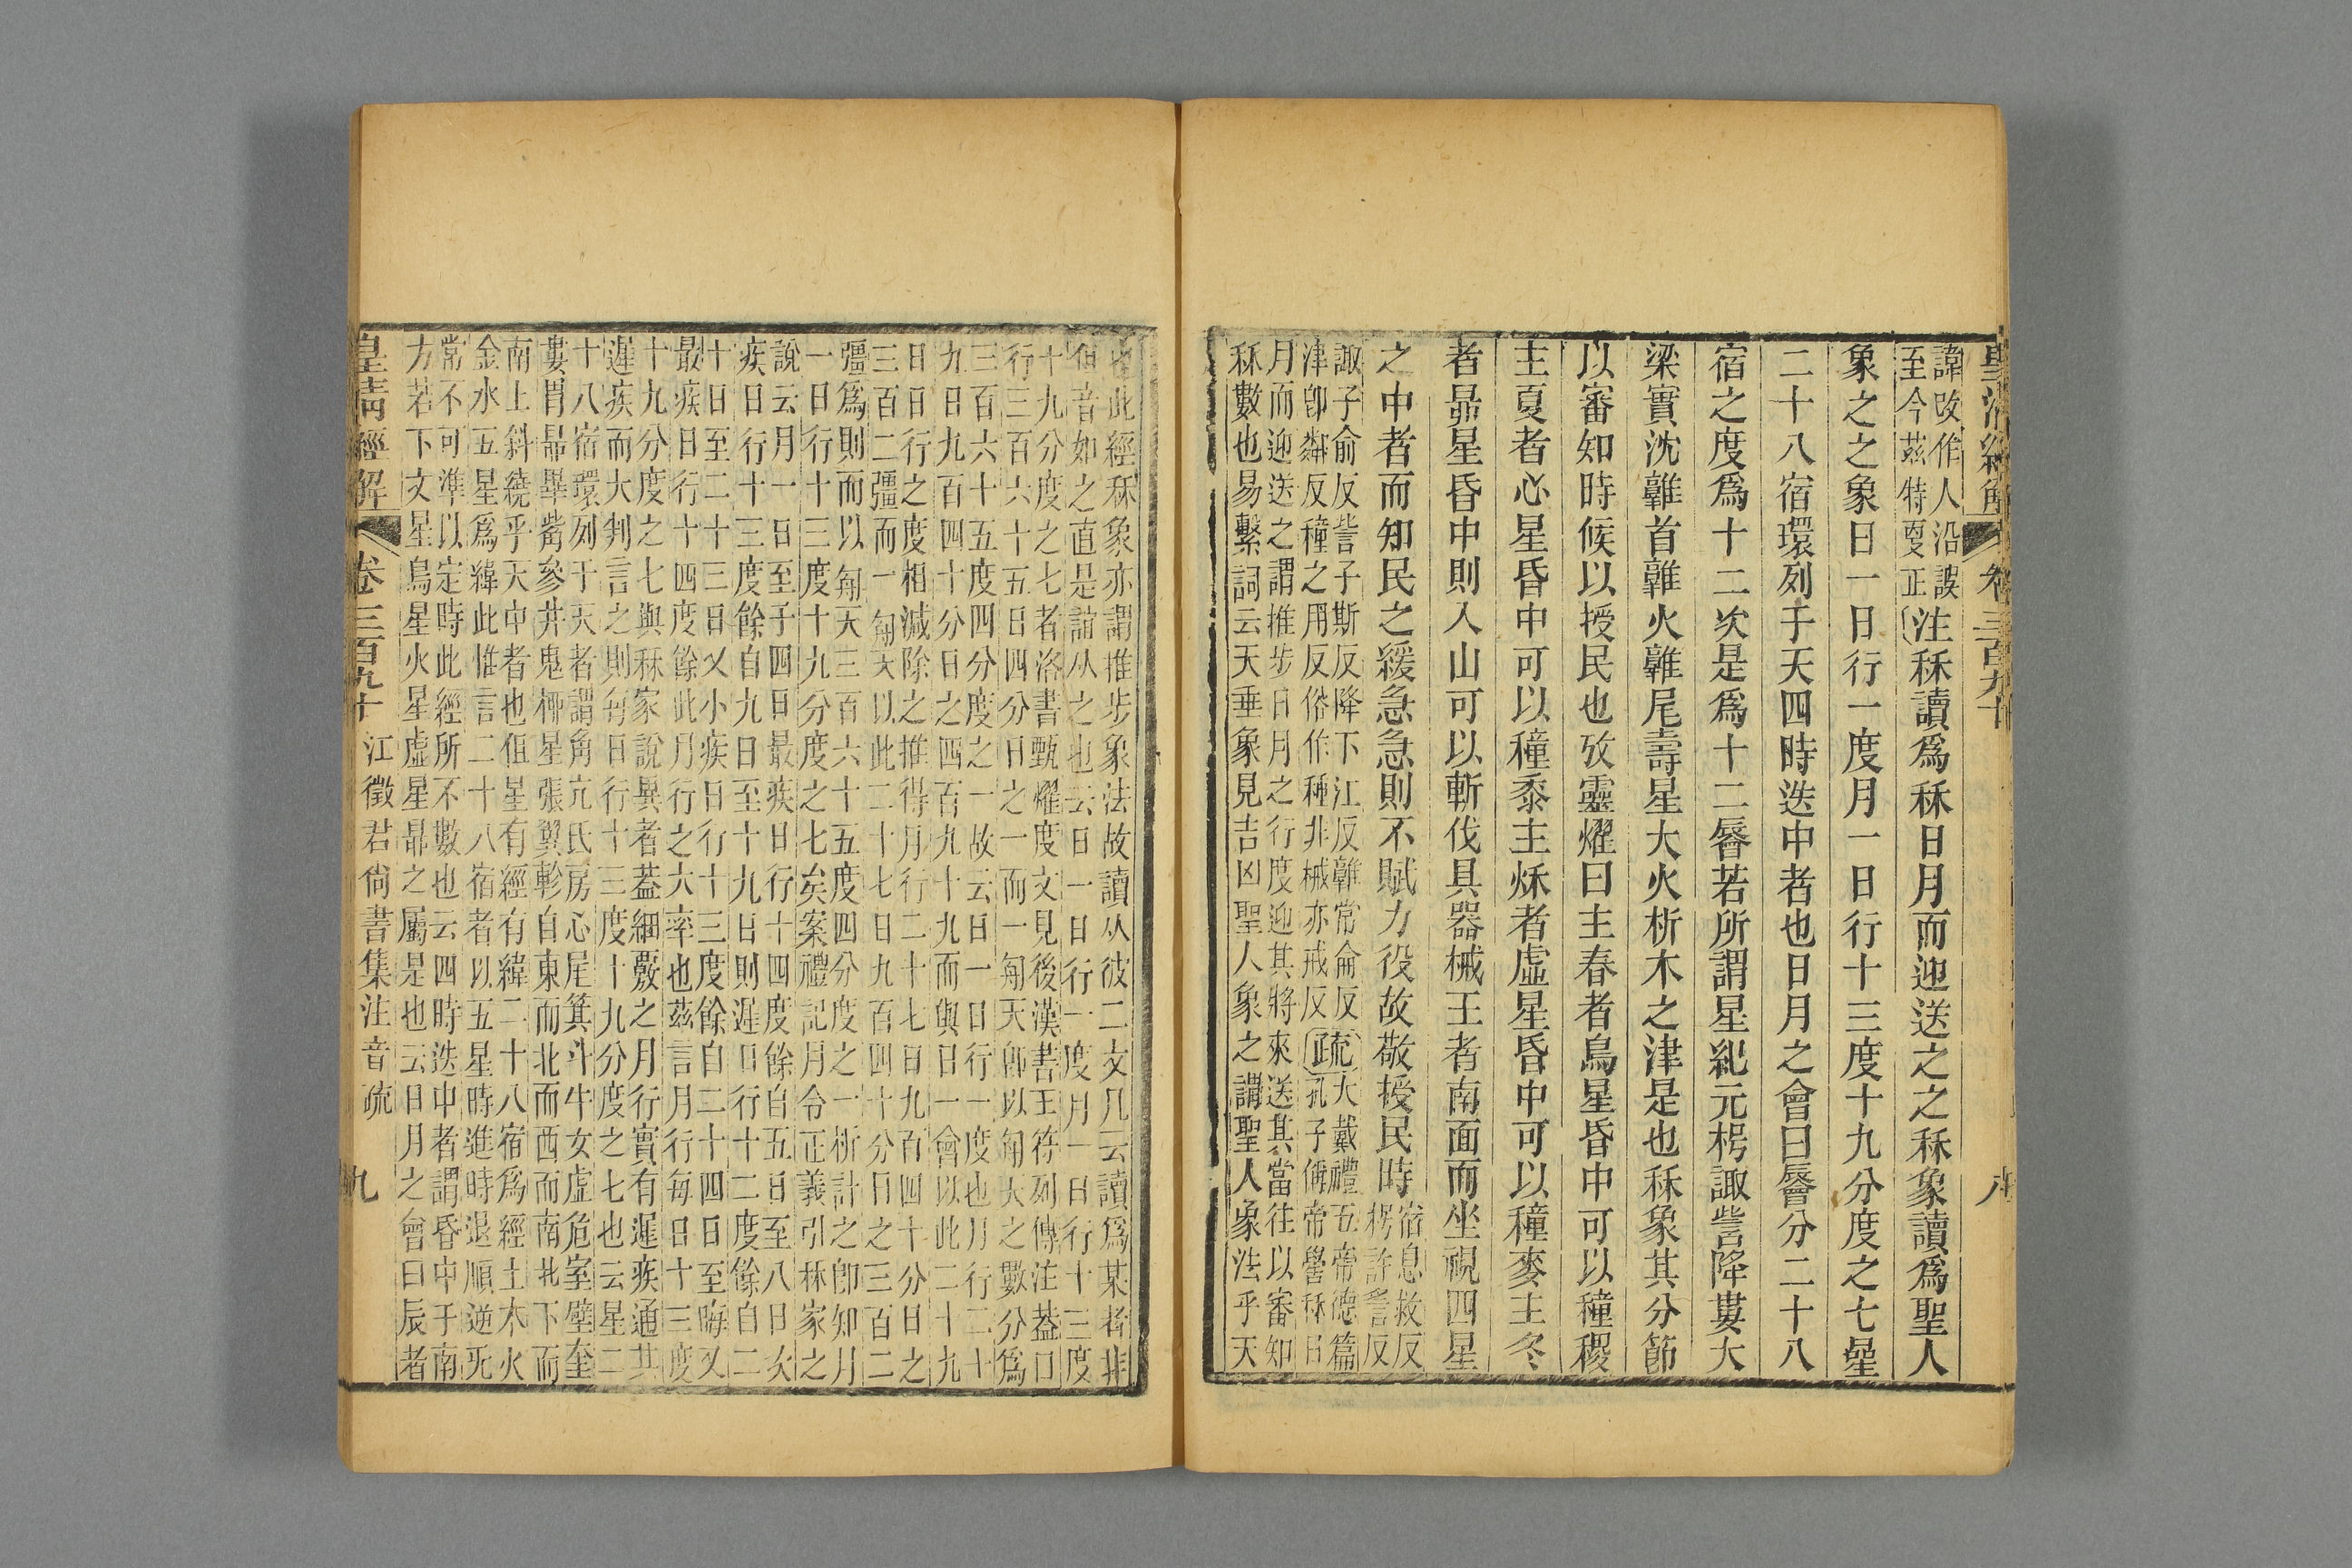 皇清經解　卷三百九十　八
諱改作人沿誤
至今茲特㪅正
注秝讀爲秝日月而迎送之之秝象讀爲聖人
象之之象日一日行一度月一日行十三度十九分度之七曐
二十八宿環列于天四時迭中者也日月之會曰䢅分二十八
宿之度爲十二次是爲十二䢅若所謂星紀元枵諏訾降婁大
梁實沈鶉首鶉火鶉尾壽星大火析木之津是也秝象其分節
以審知時候以授民也攷靈燿曰主春者鳥星昏中可以穜稷
主夏者心星昏中可以穜黍主秌者虛星昏中可以穜麥主冬
者昴星昏中則入山可以斬伐具器械王者南面而坐視四星
之中者而知民之緩急急則不賦力役故敬授民時
宿息救反
枵許反
諏子俞反訾子斯反降下江反鶉常侖反疏大戴禮五帝德篇
津卽鄰反穜之用反俗作種非械亦戒反孔子偁帝嚳秝日
月而迎送之謂推步日月之行度迎其將來送其當往以審知
秝數也易繫詞云天垂象見吉凶聖人象之謂聖人象法乎天
也此經秝象亦謂推步象法故讀从彼二文凡云讀爲某者非
但音如之直是誼从之也云日一日行一度月一日行十三度
十九分度之七者洛書甄燿度文見後漢書王符列傳注葢日
行三百六十五日四分日之一而一匊天卽以匊天之數分爲
三百六十五度四分度之一故云日一日行一度也月行二十
九日九百四十分日之四百九十九而與日一會以此二十九
日日行之度相減除之推得月行二十七日九百四十分日之
三百二彊而一匊天以此二十七日九百四十分日之三百二
彊爲則而以匊天三百六十五度四分度之一析計之卽知月
一日行十三度十九分度之七矣案禮記月令正義引秝家之
說云月一日至于四日最疾日行十四度餘自五日至八日次
疾日行十三度餘自九日至十九日則遲日行十二度餘自二
十日至二十三日又小疾日行十三度餘自二十四日至晦又
最疾日行十四度餘此月行之大率也茲言月行每日十三度
十九分度之七與秝家說異者葢細覈之月行實有遲疾通其
遲疾而大判言之則每日行十三度十九分度之七也云星二
十八宿環列于天者謂角亢氐房心尾箕斗牛女虛危室壁奎
婁胃昴畢觜參井鬼桺星張翼軫自東而北而西而南北下而
南上斜繞乎天中者也但星有經有緯二十八宿爲經土木火
金水五星爲緯此惟言二十八宿者以五星時進時退順逆旡
常不可準以定時此經所不數也云四時迭中者謂昏中于南
方若下文星鳥星火星虛星昴之屬是也云日月之會曰辰者
皇清經解　卷三百九十　江徵君尙書集注音疏　九